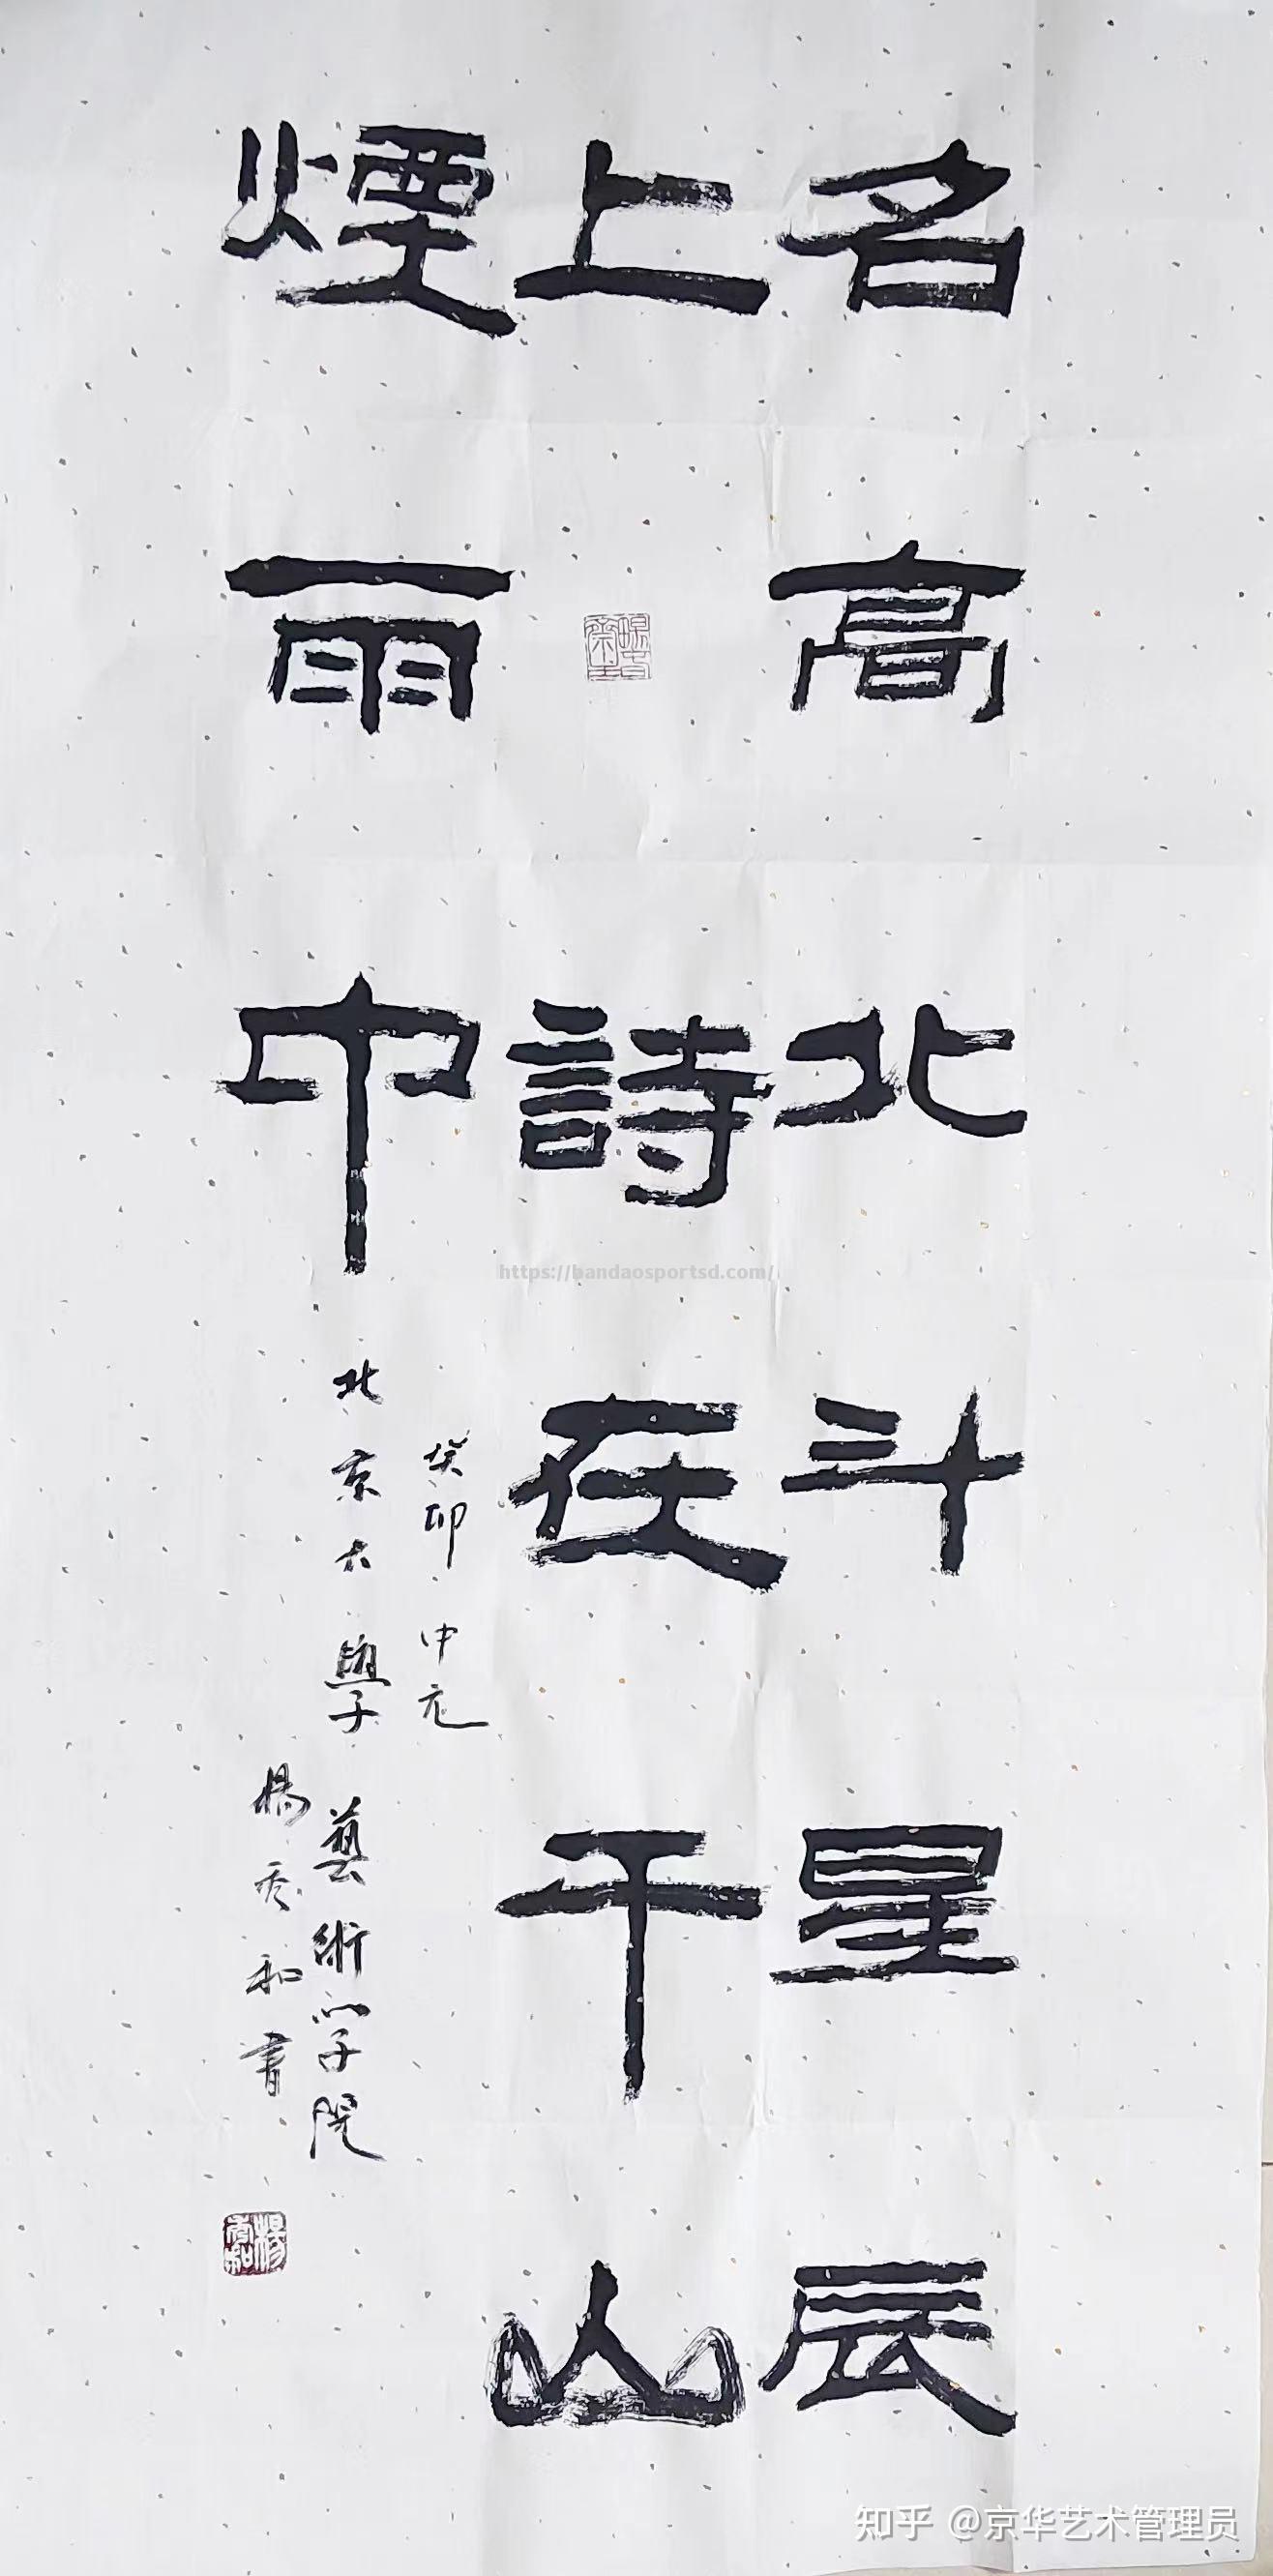 名高北斗星辰
上詩在千山
煙雨中
癸卯中元
北京大學藝術学院
楊秀和書
https://bandaosportsd.com/
知乎 @京华艺术管理员